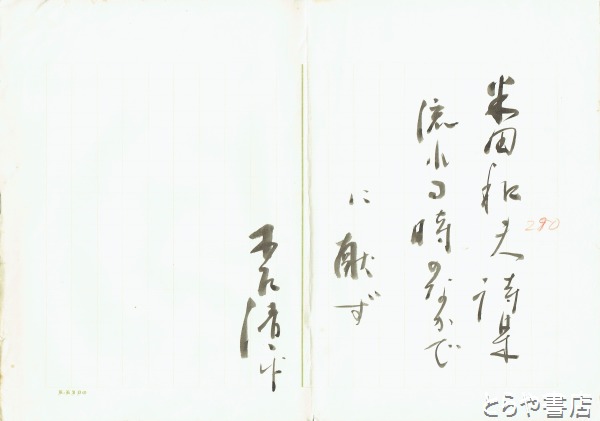 米田和夫詩集
290
流れる時のなかで
に献ず
とらや書店